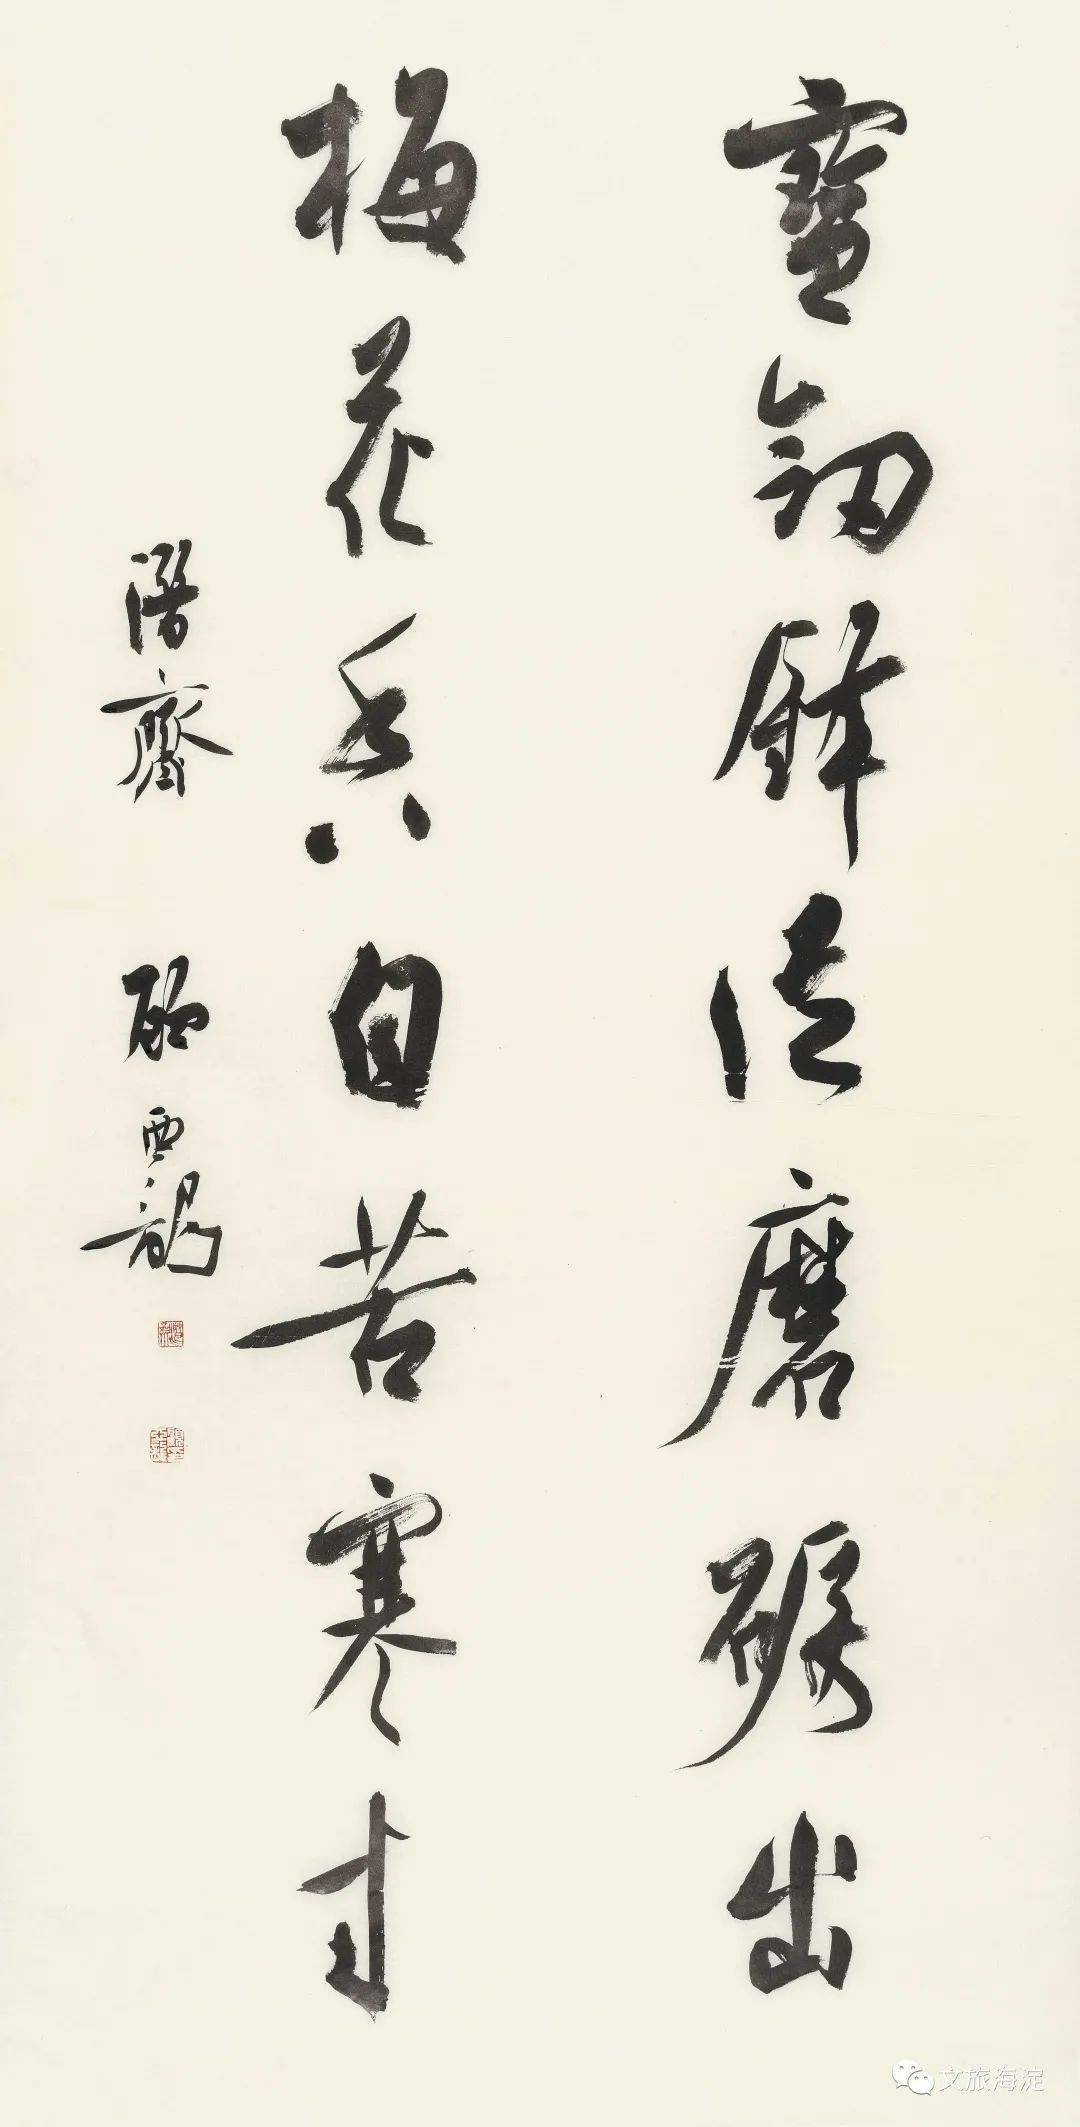 寶劍鋒從磨礪出
梅花香自苦寒來
潛齋 顧亞龍
文旅海淀